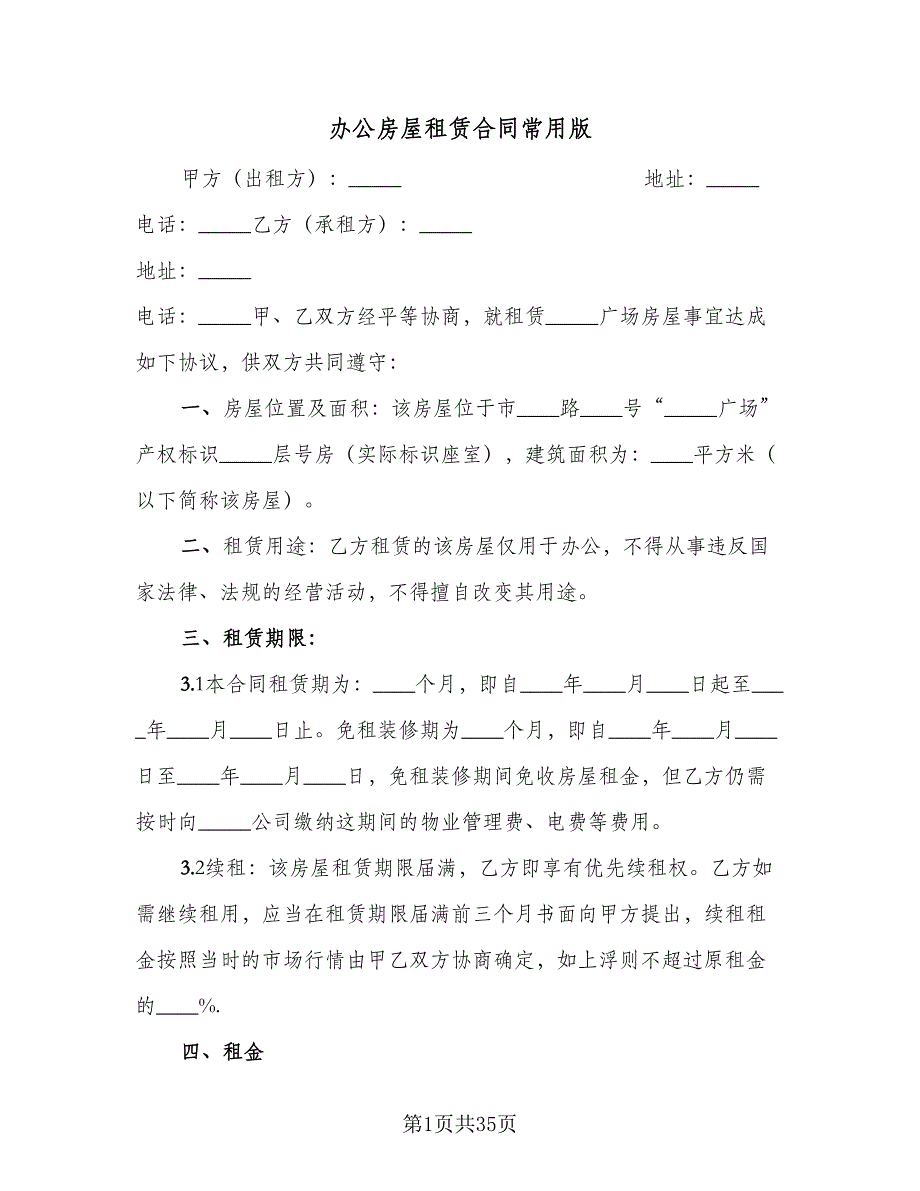 办公房屋租赁合同常用版
甲方（出租方）：_____ 地址：_____
电话：_____乙方（承租方）：_____
地址：_____
电话：_____甲、乙双方经平等协商，就租赁_____广场房屋事宜达成
如下协议，供双方共同遵守：
一、房屋位置及面积：该房屋位于市____路____号“_____广场”
产权标识_____层号房（实际标识座室），建筑面积为：____平方米（
以下简称该房屋）。
二、租赁用途：乙方租赁的该房屋仅用于办公，不得从事违反国
家法律、法规的经营活动，不得擅自改变其用途。
三、租赁期限：
3.1本合同租赁期为：____个月，即自____年____月____日起至___
_年____月____日止。免租装修期为____个月，即自____年____月____
日至____年____月____日，免租装修期间免收房屋租金，但乙方仍需
按时向_____公司缴纳这期间的物业管理费、电费等费用。
3.2续租：该房屋租赁期限届满，乙方即享有优先续租权。乙方如
需继续租用，应当在租赁期限届满前三个月书面向甲方提出，续租租
金按照当时的市场行情由甲乙双方协商确定，如上浮则不超过原租金
的____%.
四、租金
第1页共35页